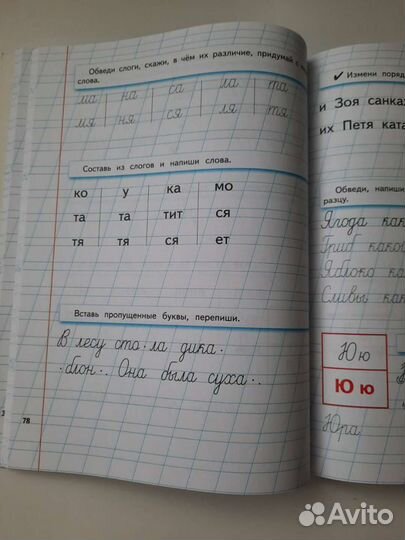 Обведи слоги, скажи, в чём их различие, придумай с
слова.
ма на са ла та
мя ня ся ля тя
Составь из слогов и напиши слова.
ко у ка мо
та та тит ся
тя тя ся ет
Вставь пропущенные буквы, перепиши.
В лесу сто·ла дика·
·блон·. Она была суха··.
78
✓ Измени поряд
и Зоя санках
их Петя ката
Обведи, напиши
разцу.
Ягода как
Гриб какой
Яблоко ка
Сливы как
Юю
Ю ю
Юра
Avito